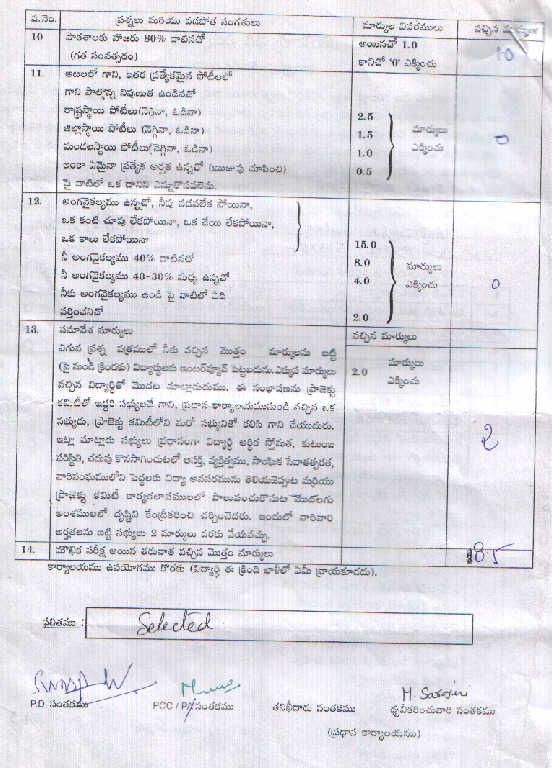 వ.నెం. ప్రశ్నలు మరియు పరిశోధిత సంగతులు మార్కుల వివరములు వచ్చిన మార్కులు
10 పాఠశాలకు హాజరు 80% దాటినచో అయినచో 1.0 10
(గత సంవత్సరం) కానిచో '0' ఎక్కించు
11. ఆటలలో గాని, ఇతర ప్రత్యేకమైన పోటీలలో
గాని పాల్గొన్న నిపుణత ఉండినచో
రాష్ట్రస్థాయి పోటీలు(నెగ్గినా, ఓడినా) 2.5
జిల్లాస్థాయి పోటీలు (నెగ్గినా, ఓడినా) 1.5 మార్కులు 0
మండలస్థాయి పోటీలు(నెగ్గినా, ఓడినా) 1.0 ఎక్కించు
ఇంకా ఏమైనా ప్రత్యేక అర్హత ఉన్నచో (ఋజువు చూపించి) 0.5
పై వాటిలో ఒక దానిని ఎన్నుకొనవలెను.
12. అంగవైకల్యము ఉన్నచో, నీవు నడవలేక పోయినా,
ఒక కంటి చూపు లేకపోయినా, ఒక చేయి లేకపోయినా,
ఒక కాలు లేకపోయినా 15.0
నీ అంగవైకల్యము 40% దాటినచో 8.0 మార్కులు
నీ అంగవైకల్యము 40-30% మధ్య ఉన్నచో 4.0 ఎక్కించు 0
నీకు అంగవైకల్యము ఉండి పై వాటిలో ఏది
వర్తించనిచో 2.0
13. సమావేశ మార్కులు వచ్చిన మార్కులు
విగువ ప్రశ్న పత్రములో నీకు వచ్చిన మొత్తం మార్కులను బట్టి మార్కులు
(పై నుండి క్రిందకు) విద్యార్థులకు ఇంటర్వ్యూకి పెట్టబడును.ఎక్కువ మార్కులు 2.0 ఎక్కించు
వచ్చిన విద్యార్థితో మొదట మాట్లాడుదురు. ఈ సంభాషణను ప్రాజెక్టు
కమిటీలో ఇద్దరి సభ్యులచే గాని, ప్రధాన కార్యాలయమునుండి వచ్చిన ఒక
సభ్యుడు, ప్రాజెక్టు కమిటీలోని మరో సభ్యునితో కలిసి గాని చేయుదురు. 2
ఇట్లా మాట్లాడు సభ్యులు ప్రధానంగా విద్యార్థి ఆర్థిక స్తోమత, కుటుంబ
పరిస్థితి, చదువు కొనసాగించుటలో ఆసక్తి, వ్యక్తిత్వము, సాంఘిక సేవాతత్పరత,
వారిసంఘములోని పెద్దలకు విద్యా అవసరమును తెలియచెప్పుట మరియు
ప్రాజెక్టు కమిటీ కార్యకలాపములలో పాలుపంచుకొనుట మొదలగు
అంశములలో దృష్టిని కేంద్రీకరించి చర్చించెదరు. ఇందులో వారివారి
అర్హతలను బట్టి సభ్యులు 2 మార్కులు వరకు వేయవచ్చు.
14. మౌఖిక పరీక్ష అయిన తరువాత వచ్చిన మొత్తం మార్కులు
కార్యాలయము ఉపయోగము కొరకు (విద్యార్థి ఈ క్రింది ఖాళీలో ఏమీ వ్రాయకూడదు).
ఫలితము : Selected
M. Sarojini
P.D సంతకము PCC / PA సంతకము తనిఖీదారు సంతకము ధృవీకరించువారి సంతకము
(ప్రధాన కార్యాలయము)